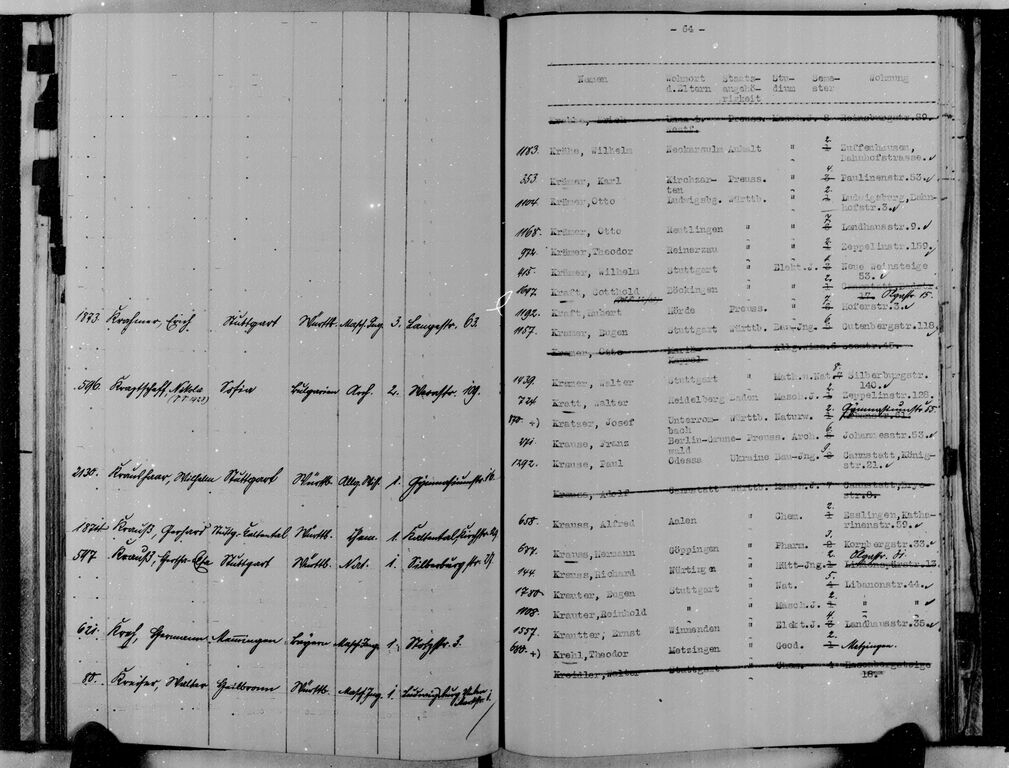 1873. Krahmer, Erich Stuttgart Württb. Masch.Ing. 3. Langestr. 63.
596. Nikola Sofia Bulgarien Arch. 2. 109.
2130. Krauthaar, Wilhelm Stuttgart Württb. Allg. 1. Gymnasiumstr.
Krauß, Gerhard Württb. Chem. 1.
547 Krauß, Stuttgart Württb. Nat. 1. Silberburgstr.
621. Hermann Memmingen Bayern Masch.Ing. 1.
80. Kreiser, Walter Heilbronn Württb. Masch.Ing. 1. Ludwigsburg
- 64 -
Namen Wohnort Staats- Stu- Seme- Wohnung
d.Eltern angehö- dium ster
rigkeit
Preuss. Masch.J. 8 Heinsbergstr.89.
1183. Krähe, Wilhelm Neckarsulm Anhalt " 2 Zuffenhausen,
Bahnhofstrasse.
353 Krämer, Karl Kirchzar- Preuss. " 4 Paulinenstr.53.
ten
1104. Krämer,Otto Ludwigsbg. Württb. " 2 Ludwigsburg,Bahn-
hofstr.3.
1168. Krämer, Otto Reutlingen " " 7 Landhausstr.9.
972. Krämer,Theodor Reinerzau " " Zeppelinstr.159.
915. Krämer, Wilhelm Stuttgart " Elekt.J. Neue Weinsteige
53.
1647. Kraft, Gotthold Böckingen " " 2. Cannstatt
17. Olgastr 15.
1192. Kraft,Hubert Hörde Preuss. " 7 Hoferstr.3.
1157. Kramer, Eugen Stuttgart Württb. Bau-Jng. 6 Gutenbergstr.118
Kramer, Otto
1439. Kramer, Walter Stuttgart " Math.u.Nat. 8. Silberburgstr.
140.
724 Kratt, Walter Heidelberg Baden Masch.J. 2. Zeppelinstr.128.
870. +) Kratzer, Josef Unterrom- Württb. Naturw. 2. Gymnasiumstr
bach
271. Krause, Franz Berlin-Grune- Preuss. Arch. 6 Johannesstr.53.
wald
1292. Krause, Paul Odessa Ukraine Bau-Jng. 9. Cannstatt,König-
str.21.
Krauss, Adolf Cannstatt Württb. Masch.J. 7 Cannstatt,
str.8.
658. Krauss, Alfred Aalen " Chem. 2. Esslingen,Katha-
rinenstr.59.
677. Krauss,Hermann Göppingen " Pharm. 3. Kornbergstr.33.
144. Krauss,Richard Nürtingen " Hütt-Jng. 2. Olgastr. 31.
1780 Krauter, Eugen Stuttgart " Nat. 5. Libanonstr.44.
1108. Krauter,Reinhold " " Masch.J. 2. " "
1557. Krautter, Ernst Winnenden " Elekt.J. 4. Landhausstr.35.
680. +) Krehl,Theodor Metzingen " Geod. Metzingen.
Kreidler,Walter Stuttgart " Chem. 4 Hasenbergsteige
18.